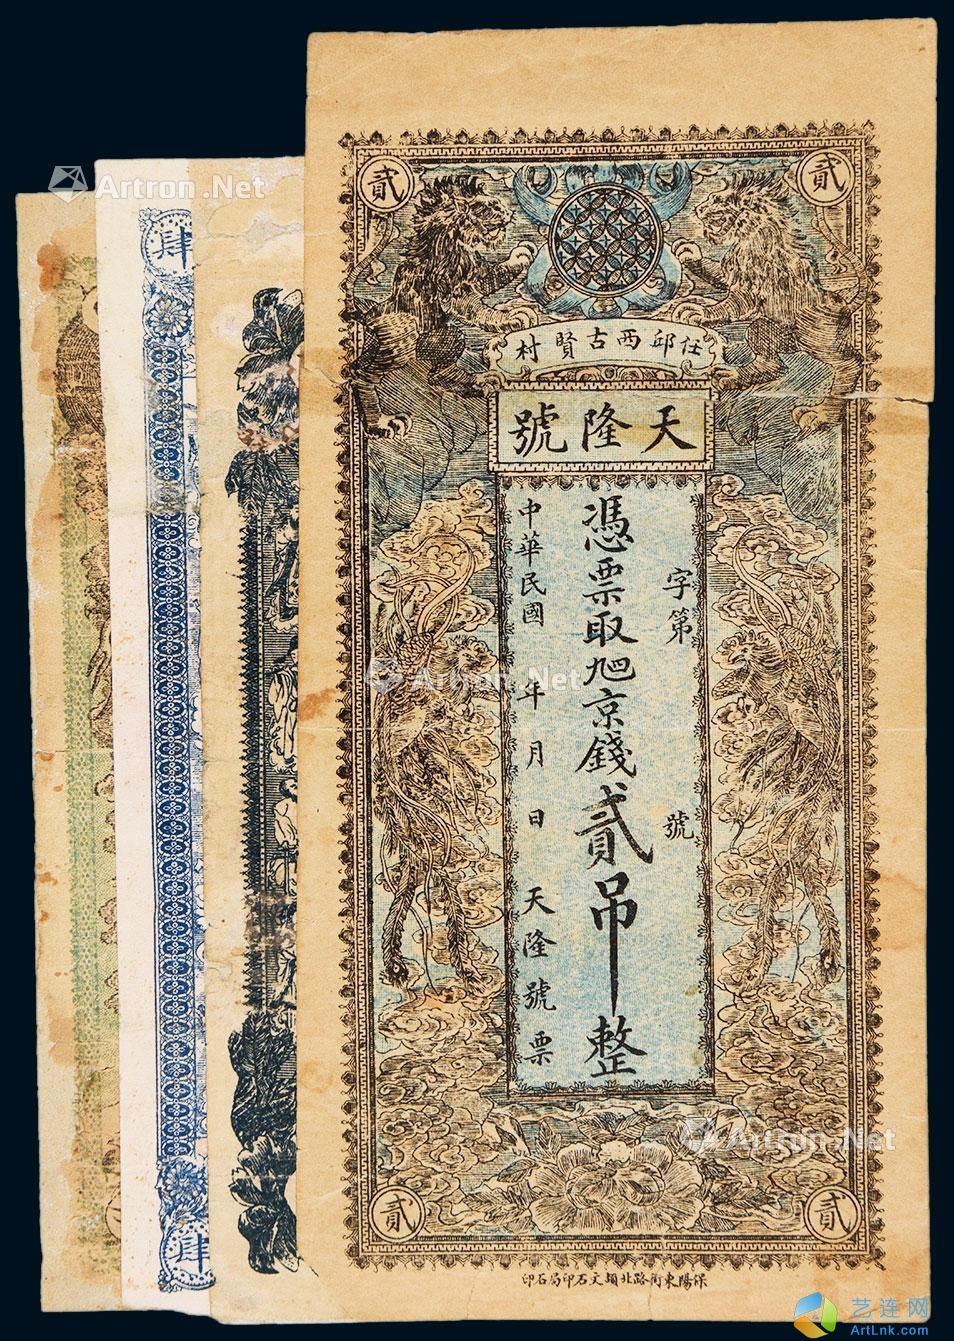 貳
貳
任邱西古賢村
天隆號
字第 號
憑票取九四京錢貳吊整
中華民國 年 月 日 天隆號票
貳
貳
保陽東街路北頴文石印局石印
肆
肆
Artron.Net
Artron.Net
Artron.Net
Artron.Net
艺连网
ArtLnk.com